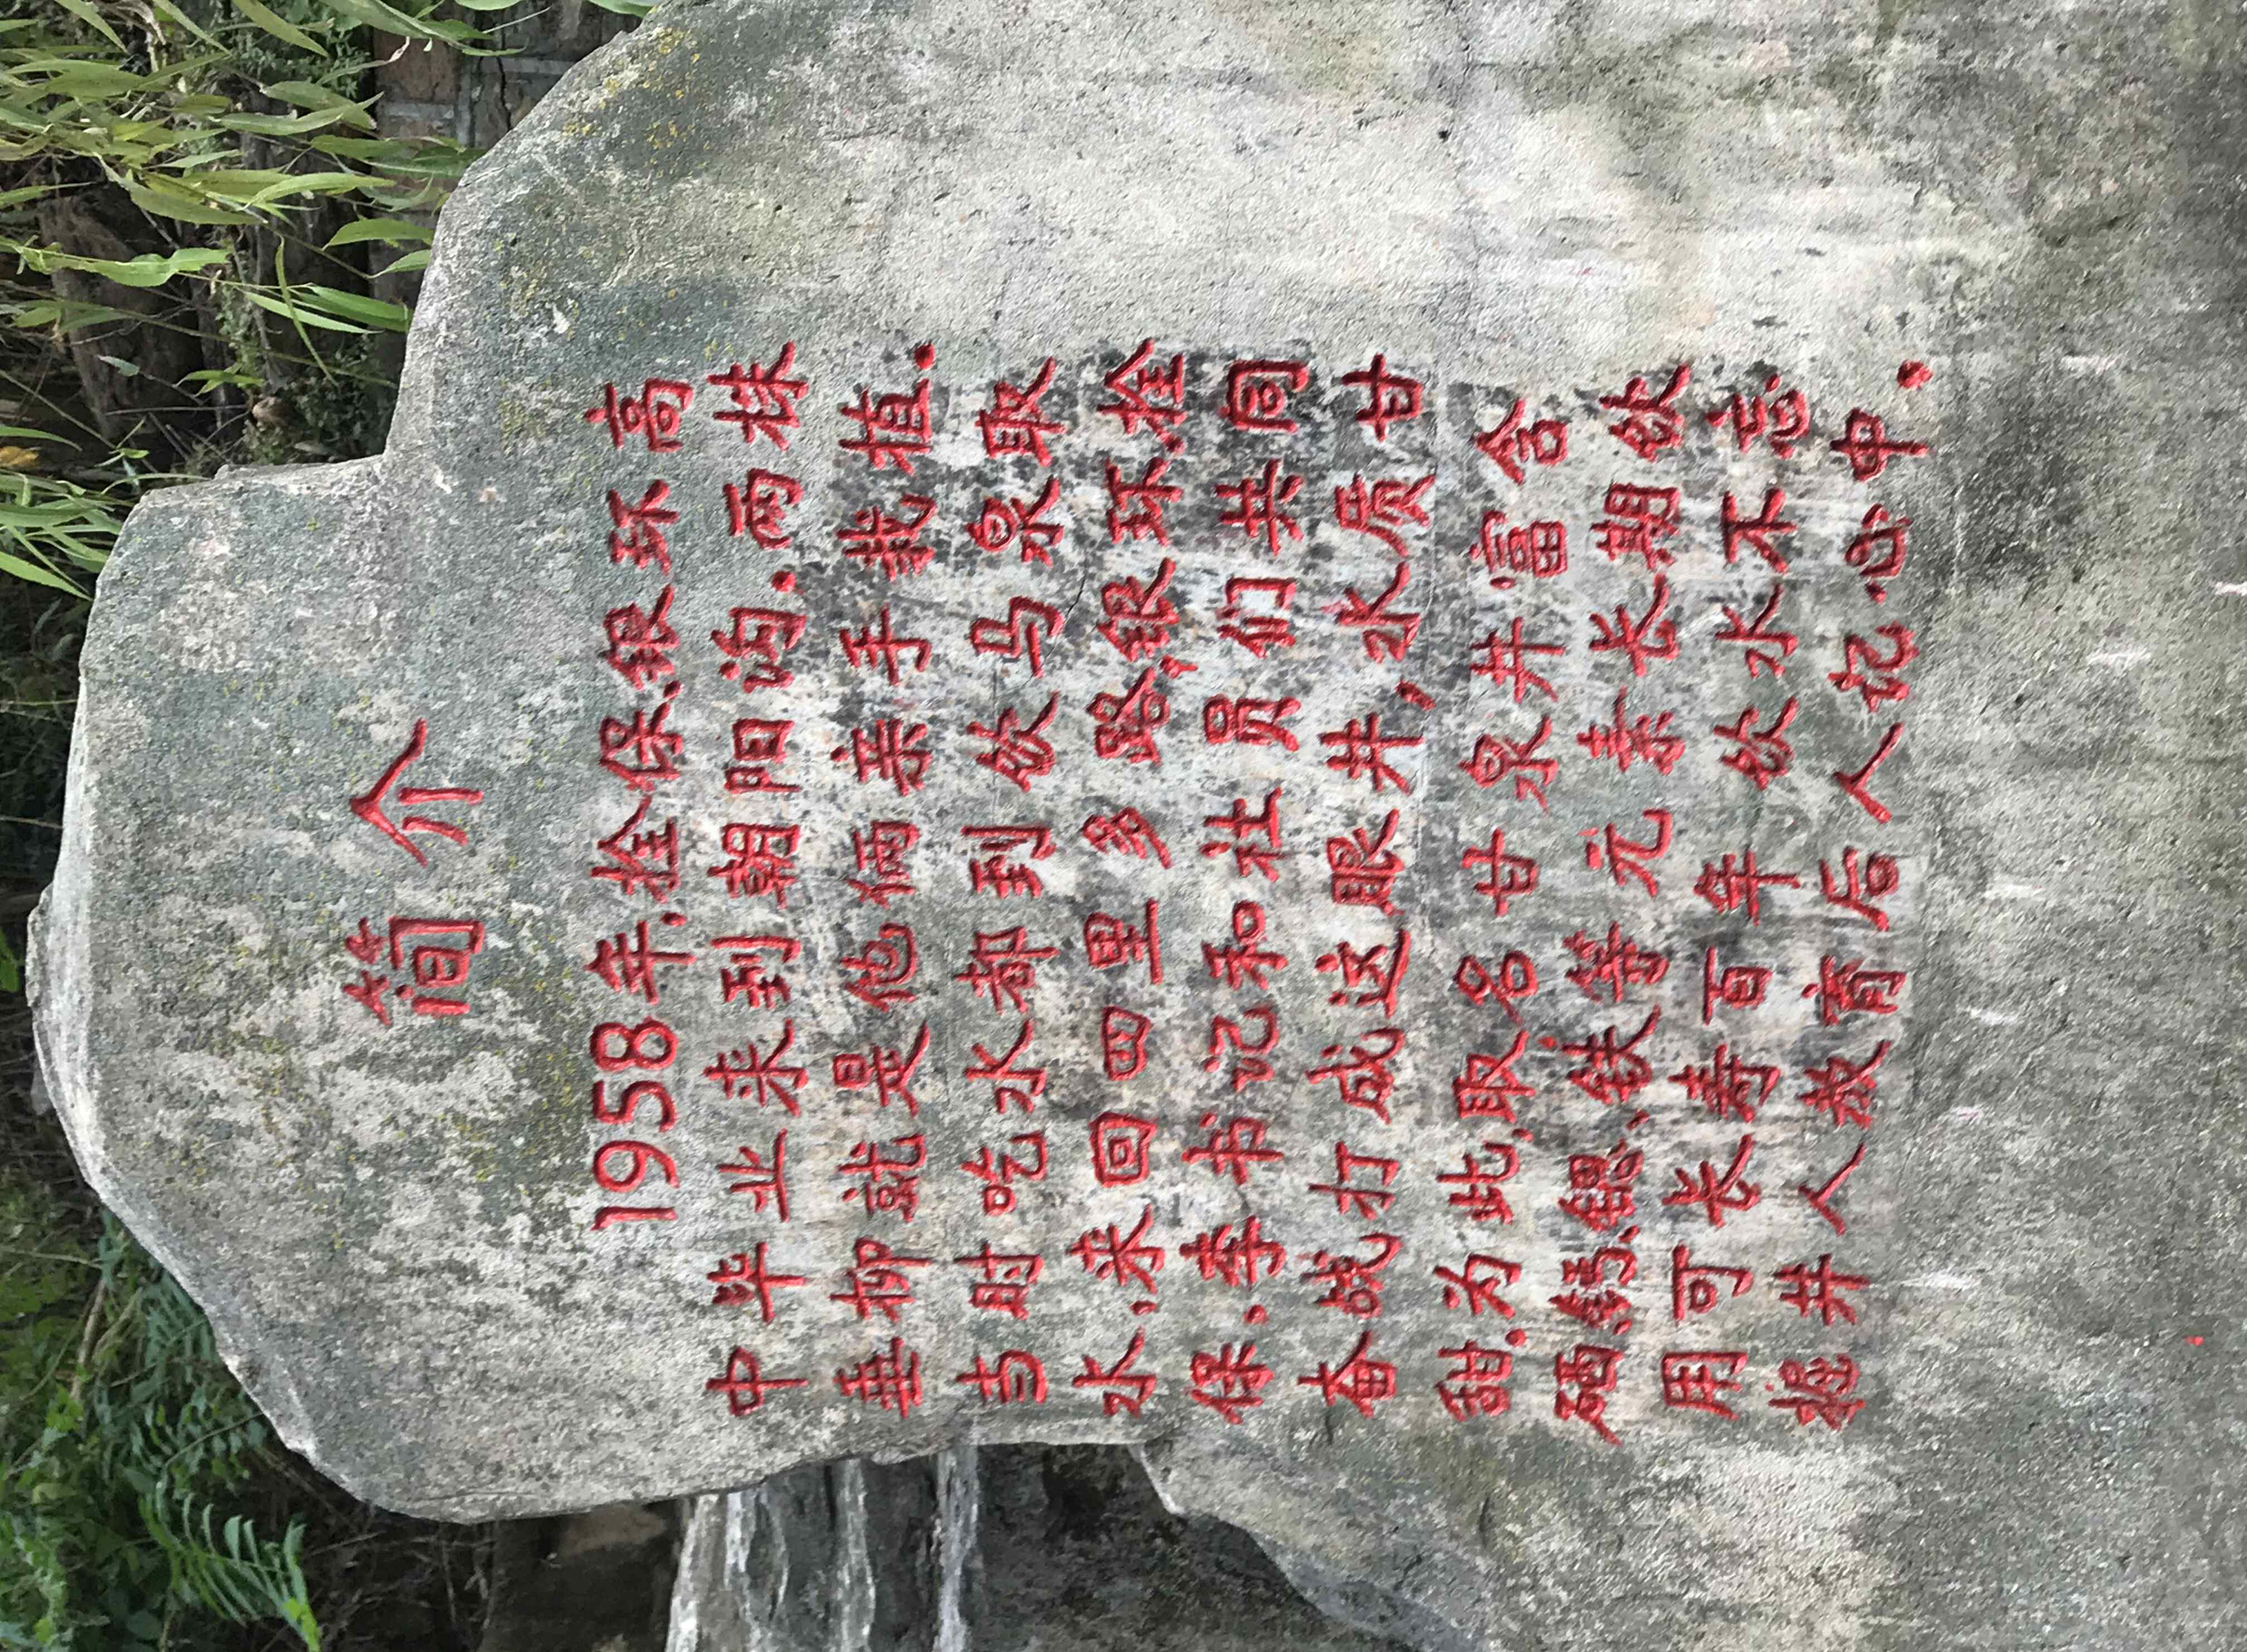 简介
1958年,拴保,银环高
中毕业来到朝阳沟.两株
垂柳就是他俩亲手栽植.
当时吃水都到饮马泉取
水,来回四里多路,银环,拴
保.李书记和社员们共同
奋战打成这眼井,水质甘
甜.为此,取名甘泉井富含
硒、锶、铁等元素长期饮
用可长寿百年饮水不忘
掘井人故育后人记心中.